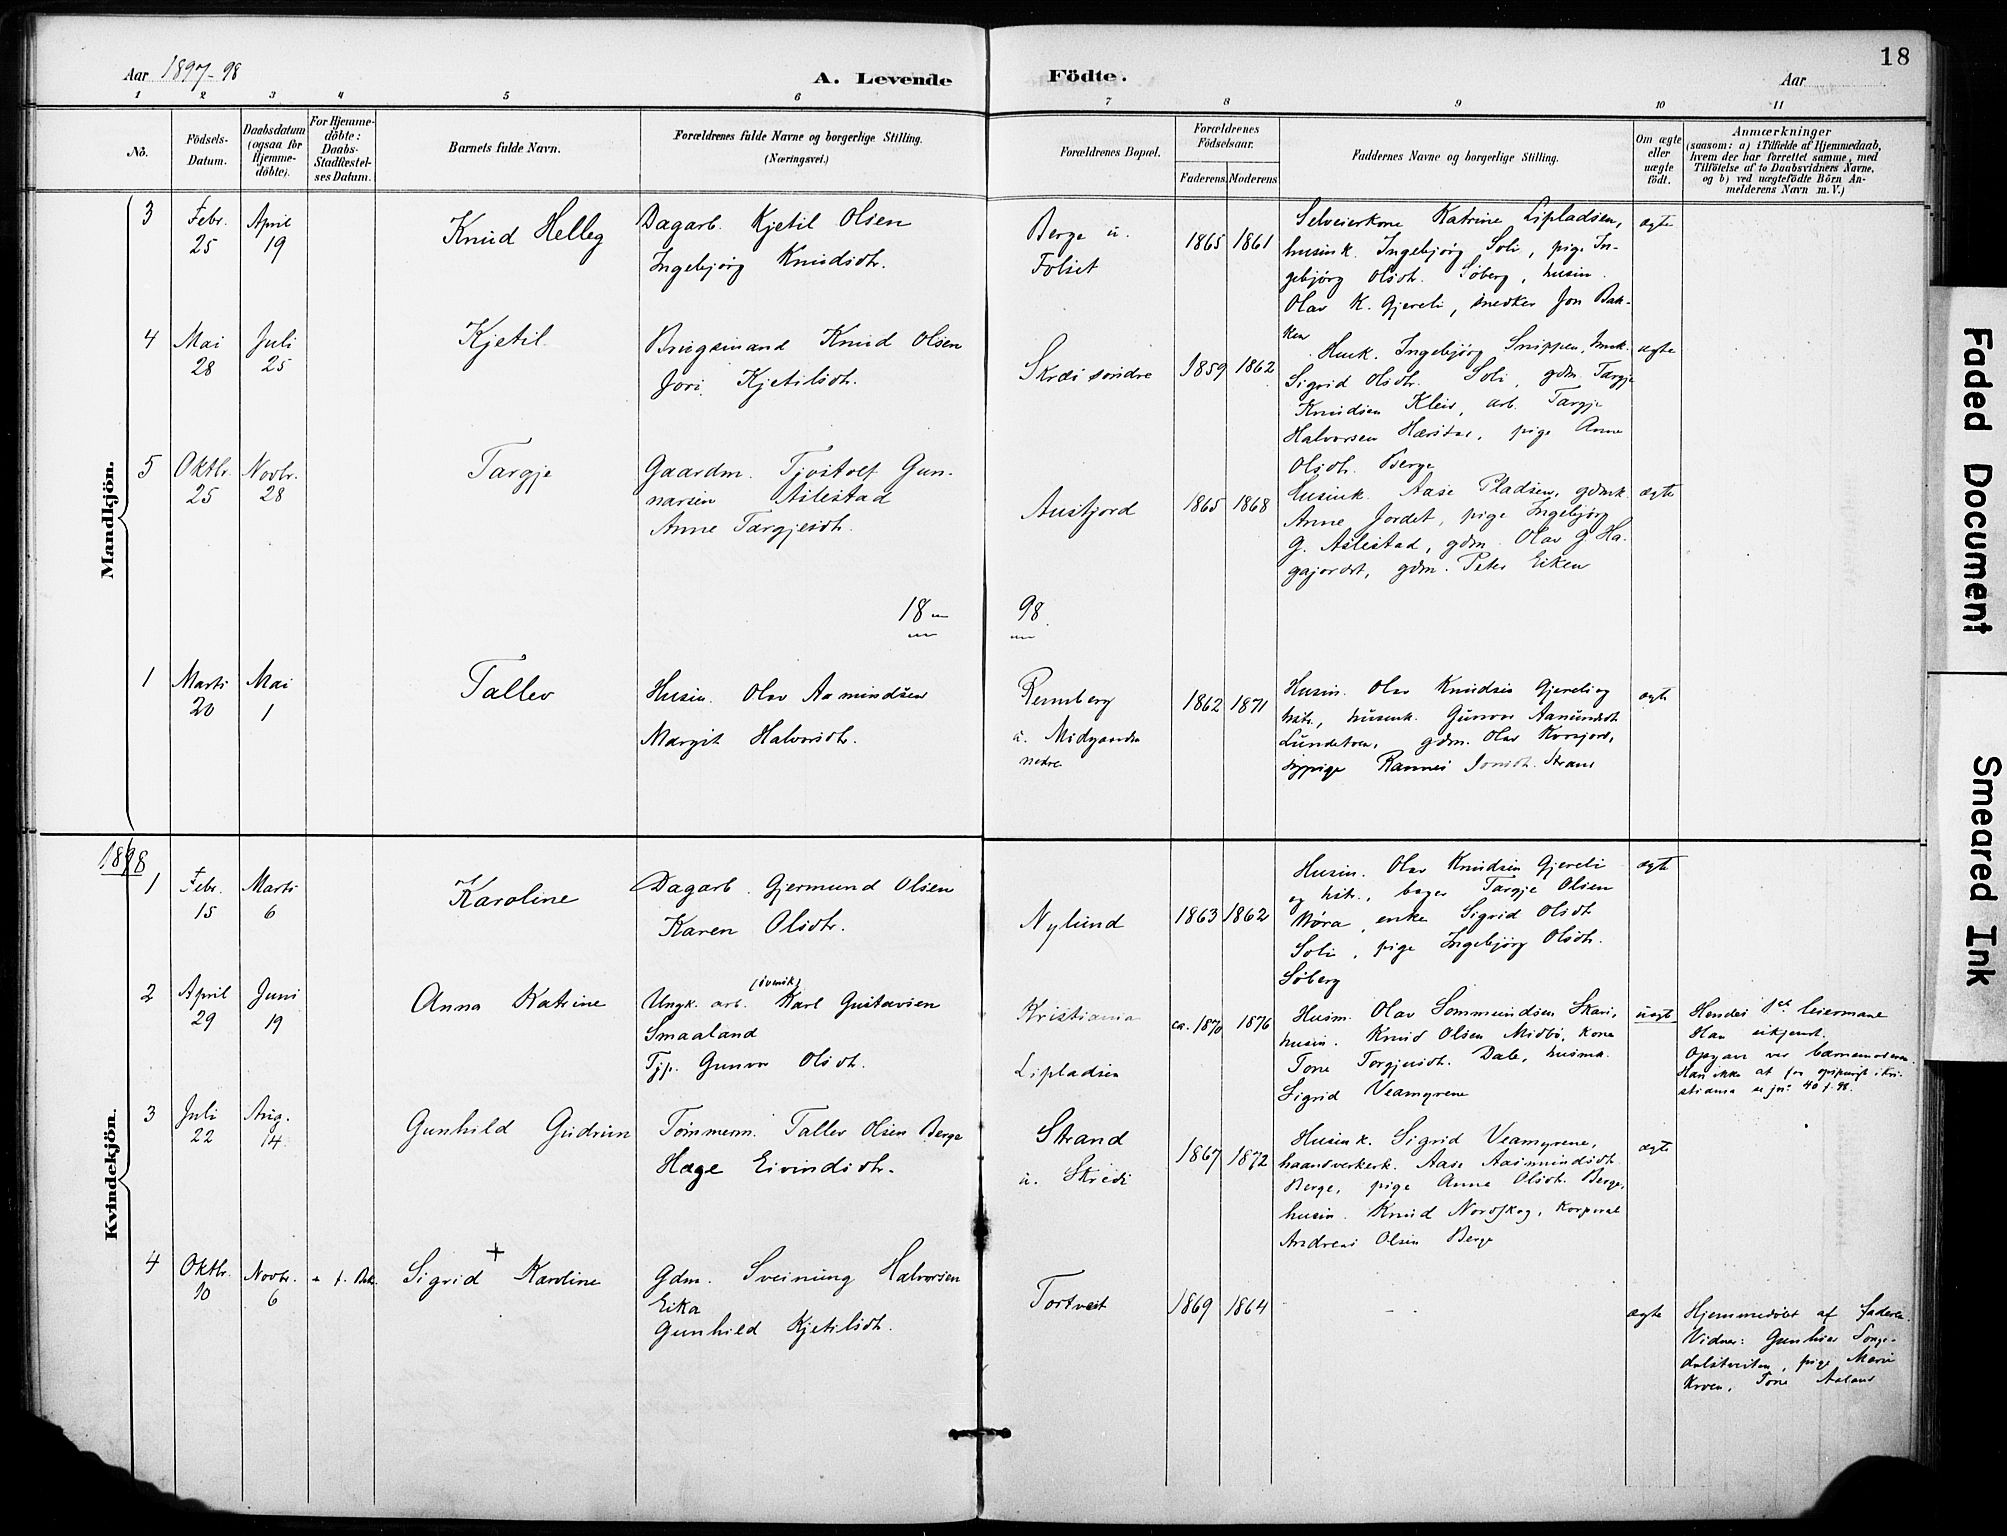 18
Aar 1897-98
A. Levende Födte.
Aar
1 2 3 4 5 6 7 8 9 10 11
No.
Födsels-Datum.
Daabsdatum (ogsaa for Hjemmedöbte).
For Hjemmedöbte: Daabs-Stadfæstelses Datum.
Barnets fulde Navn.
Forældrenes fulde Navne og borgerlige Stilling.
(Næringsvei.)
Forældrenes Bopæl.
Forældrenes Födselsaar.
Faderens. Moderens.
Faddernes Navne og borgerlige Stilling.
Om ægte eller uægte födt.
Anmærkninger
(saasom: a) i Tilfælde af Hjemmedaab, hvem der har forrettet samme, med Tilföielse af to Daabsvidners Navne, og b) ved uægtefödte Börn Anmelderens Navn m. V.)
Mandkjön.
3 Febr. 25 April 19
Knud Helleg
Dagarb. Kjetil Olsen
Ingebjörg Knudsdtr.
Berge u.
Folset
1865 1861
Selveierkone Katrine Lipladsen,
husmk. Ingebjörg Soli, pige In-
gebjörg Olsdtr. Söberg, husm.
Olav K. Gjereli, snedker Jon Bak-
ken
ægte
4 Mai 28 Juli 25
Kjetil
Brugsmand Knud Olsen
Jori Kjetilsdtr.
Skrei söndre
1859 1862
Husk. Ingebjörg Snippen, husk.
Sigrid Olsdtr. Soli, gdm. Targje
Knudsen Kleiv, arb. Targje
Halvorsen Hærstad, pige Anne
Olsdtr. Berge
ægte
5 Oktbr. 25 Novbr. 28
Targje
Gaardm. Tjostolf Gun-
narsen Aslestad
Anne Targjesdtr.
Austjord
1865 1868
Husmk. Aase Pladsen, gdmk.
Anne Jordet, pige Ingebjörg
G. Aslestad, gdm. Olav G. Ha-
gajordet, gdm. Peter Eiken
ægte
18 98
1 Marts 20 Mai 1
Tallev
Husm. Olav Aamundsen
Margit Halvorsdtr.
Remberg
u. Midgaarden
nedre
1862 1871
Husm. Olav Knudsen Gjereli og
hstr., husmk. Gunvor Aanundsdtr
Lundetven, gdm. Olav Korsjord,
sypige Rannei Jonsdtr. Strand
ægte
Kvindekjön.
1898
1 Febr. 15 Marts 6
Karoline
Dagarb. Gjermund Olsen
Karen Olsdtr.
Nylund
1863 1862
Husm. Olav Knudsen Gjereli
og hstr., bager Targje Olsen
Möra, enke Sigrid Olsdtr
Soli, pige Ingebjörg Olsdtr.
Söberg
ægte
2 April 29 Juni 19
Anna Katrine
(svensk)
Ungk. arb. Karl Gustavsen
Smaaland
Tjp. Gunvor Olsdtr.
Kristiania
Lipladsen
ca. 1870 1876
Husm. Olav Sommundsen Skari,
husm. Knud Olsen Midbö, kone
Tone Torgjusdtr. Dale, husmk.
Sigrid Veamyrene
uægte
Hendes 1ste leiermaal
Han ukjendt.
Opgave ved barnemoderen.
Han ikke at faa opspurgt i Kri-
stiania
3 Juli 22 Aug. 14
Gunhild Gudrun
Tömmerm. Tallev Olsen Berge
Hæge Eivindsdtr.
Strand
u. Skredi
1867 1872
Husmk. Sigrid Veamyrene,
haandverkerk. Aase Aasmundsdtr
Berge, pige Anne Olsdtr. Berge,
husm. Knud Nordskog, Korporal
Andreas Olsen Berge
ægte
4 Oktbr. 10 Novbr. 6
+
Sigrid Karoline
Gdm. Sveinung Halvorsen
Eika
Gunhild Kjetilsdtr.
Tortveit
1869 1864
ægte
Hjemmedöbt af Faderen.
Vidner: Gunhild Songe-
dalstveiten, pige Marie
Kroen, Tone Aaland
Faded Document
Smeared Ink